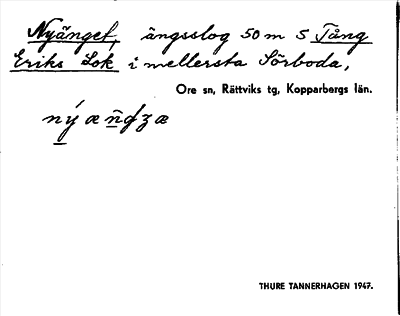 Nyänget, ängsslog 50 m S Täng
Eriks Lok i mellersta Sörboda,
Ore sn, Rättviks tg, Kopparbergs län.
THURE TANNERHAGEN 1947.